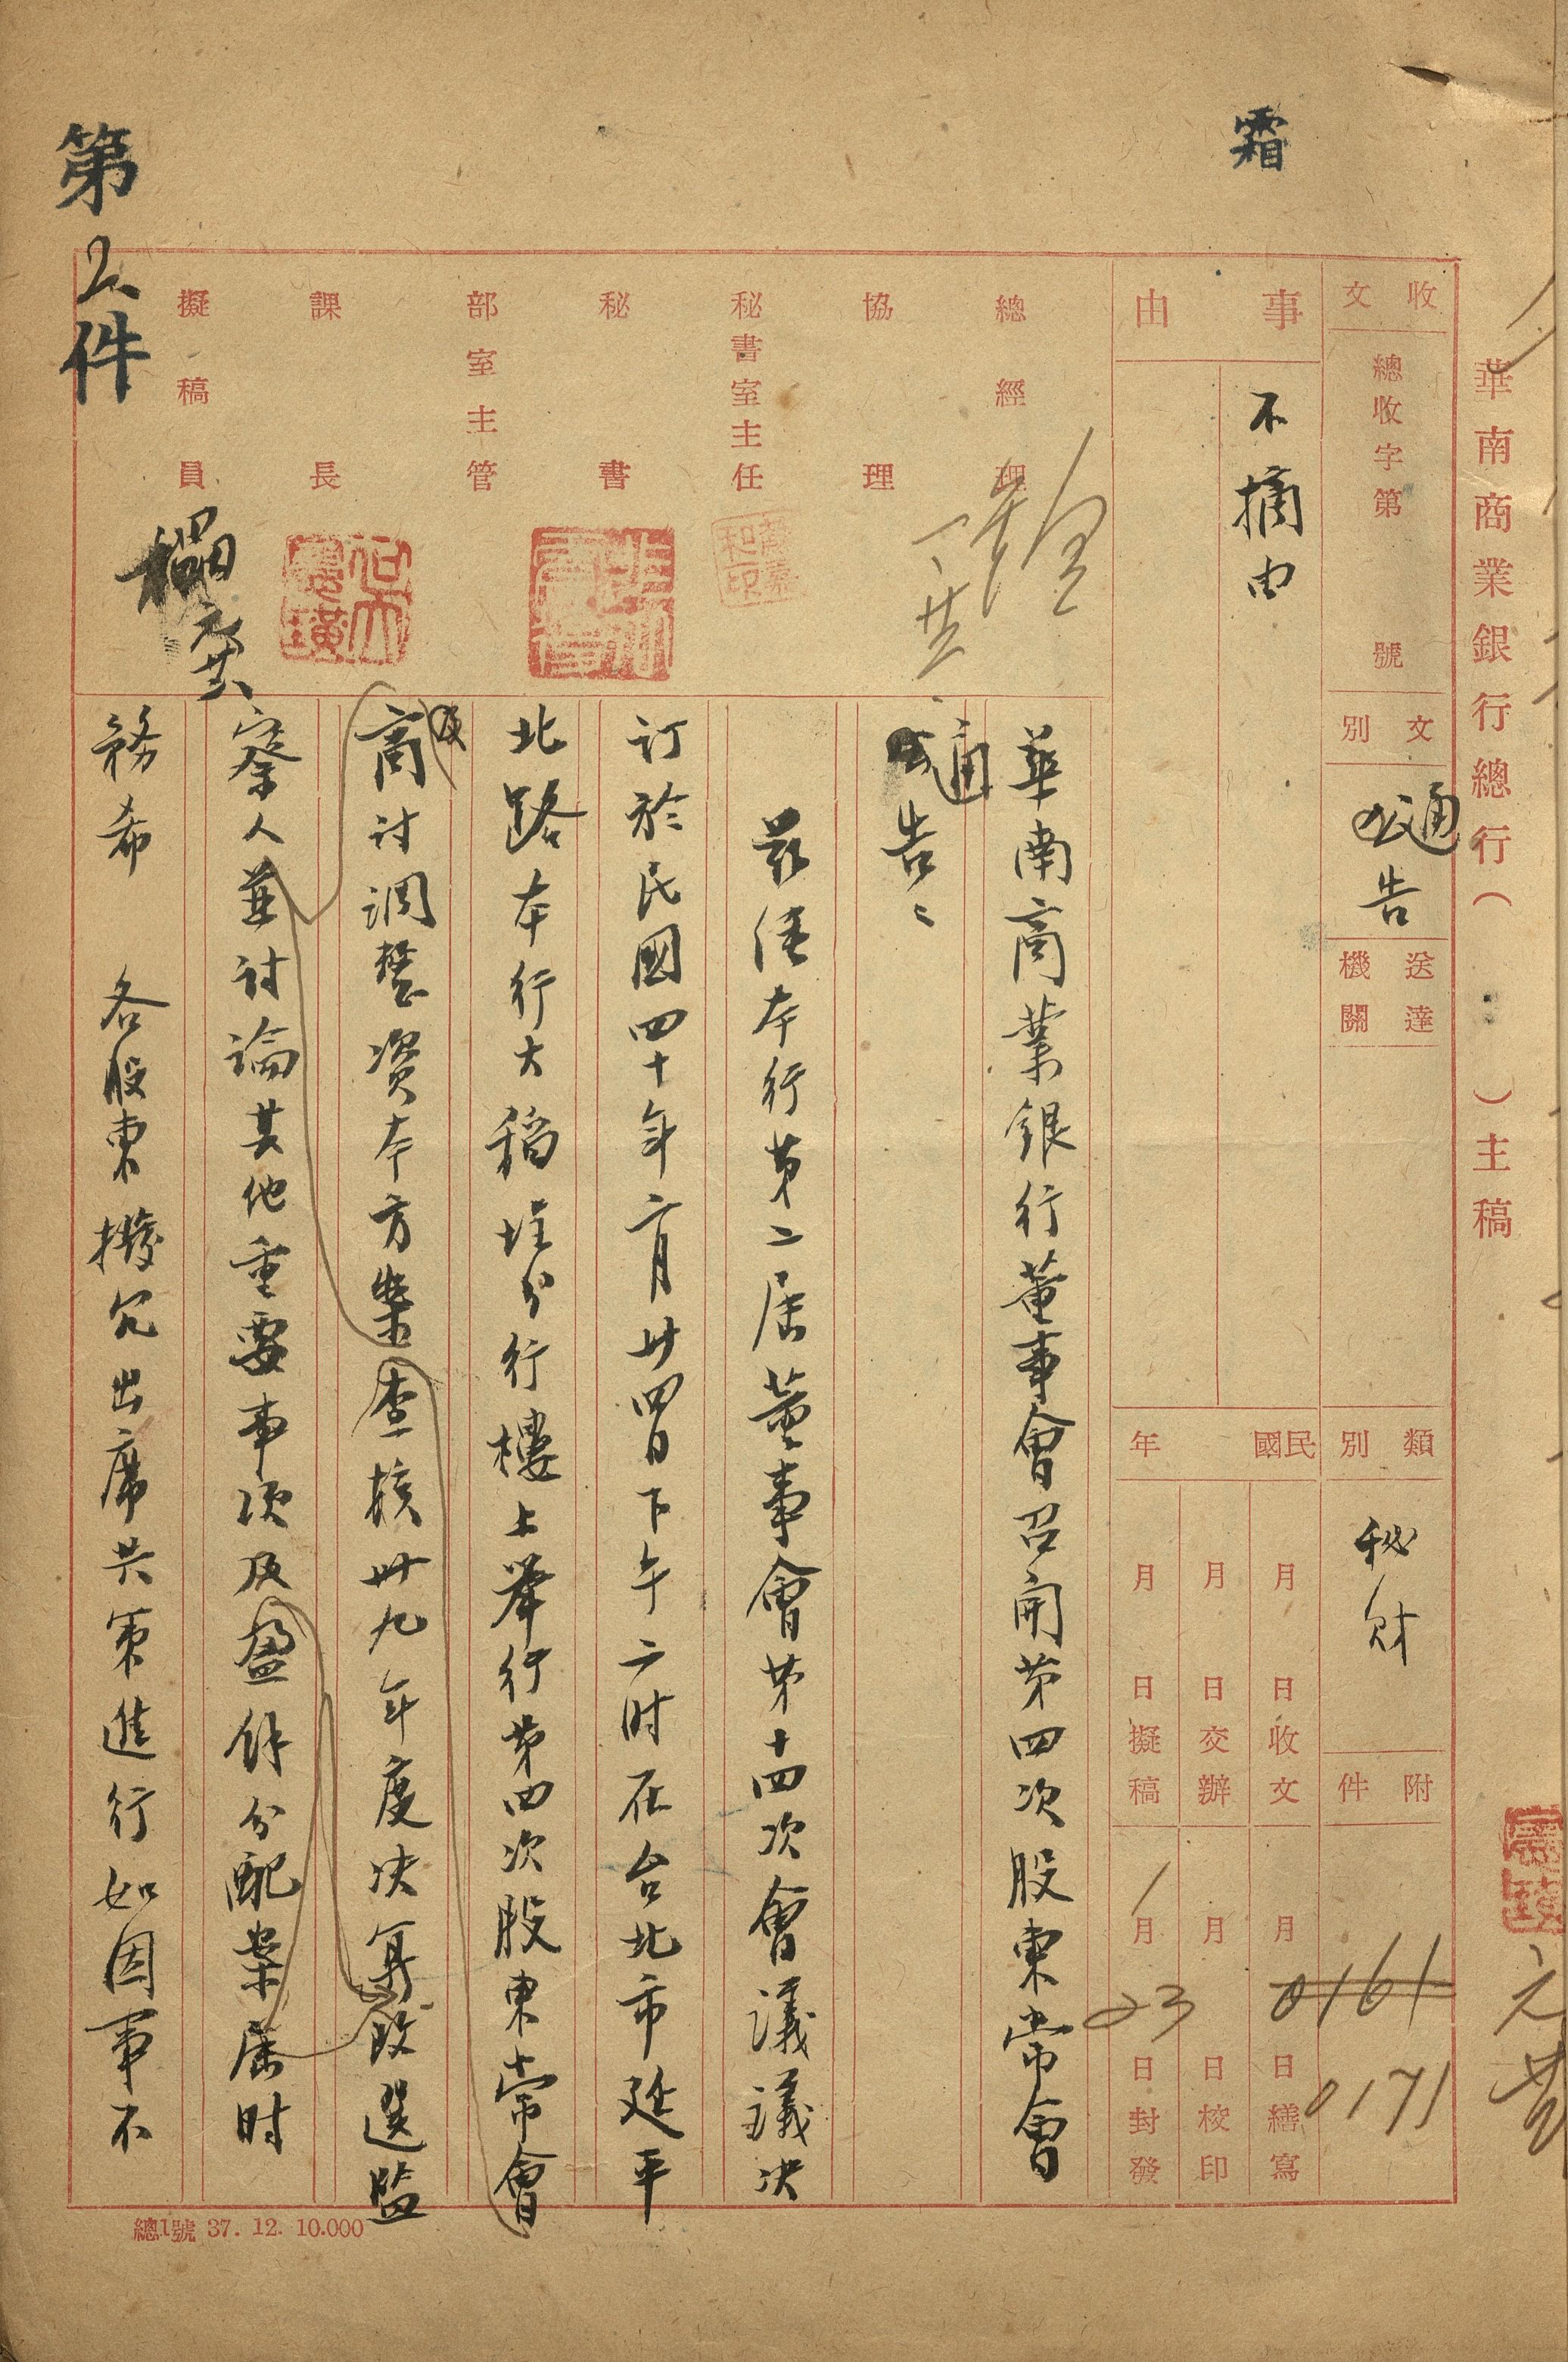 華南商業銀行總行（　）主稿
收文
總收字第　號
文別
通告
送達機關
類別
秘財
附件
0161
0171
事由
不摘由
民國　年
月　日收文
月　日交辦
月　日擬稿
月　日繕寫
月　日校印
1月23日封發
總經理
協理
秘書室主任
秘書
部室主管
課長
擬稿員
霜
第2件
華南商業銀行董事會召開第四次股東常會
通告
茲經本行第二屆董事會第十四次會議議決
訂於民國四十年二月廿四日下午二时在台北市延平
北路本行大稻埕分行樓上舉行第四次股東常會
商討調整資本方案查核卅九年度决算改選監
察人並討論其他重要事项及盈餘分配案屆时
務希　各股東撥冗出席共策進行如因事不
總1號 37. 12. 10.000